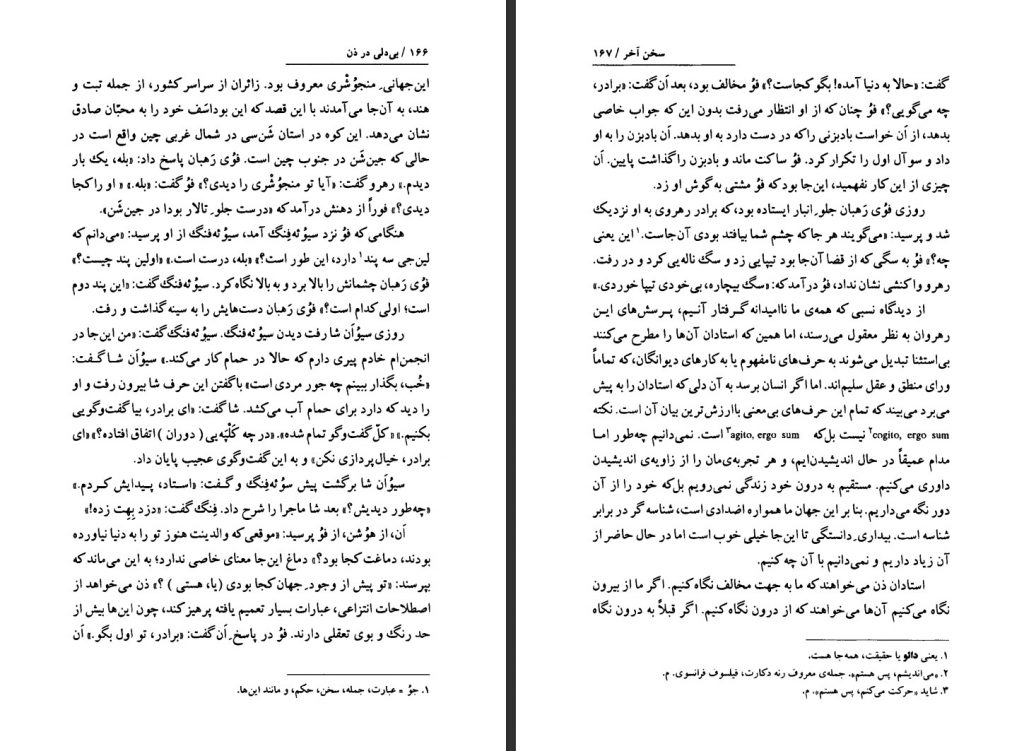 ۱۶۶ / بی‌دلی در ذن
این‌جهانیِ منجوُشْری معروف بود. زائران از سراسر کشور، از جمله تبت و
هند، به آن‌جا می‌آمدند با این قصد که این بوداسَف خود را به محبّان صادق
نشان می‌دهد. این کوه در استان شَن‌سی در شمال غربی چین واقع است در
حالی که جین‌شَن در جنوب چین است. فوُی رَهبان پاسخ داد: «بله، یک بار
دیدم.» رهرو گفت: «آیا تو منجوُشْری را دیدی؟» فوُ گفت: «بله.» « او را کجا
دیدی؟» فوراً از دهنش درآمد که «درست جلوِ تالار بودا در جین‌شَن».
هنگامی که فوُ نزد سیوُئه‌فِنگ آمد، سیوُئه‌فنگ از او پرسید: «می‌دانم که
لین‌جی سه پند۱ دارد، این طور است؟» «بله، درست است.» «اولین پند چیست؟»
فوُی رَهبان چشمانش را بالا برد و به بالا نگاه کرد. سیوُئه‌فنگ گفت: «این پند دوم
است؛ اولی کدام است؟» فوُی رَهبان دست‌هایش را به سینه گذاشت و رفت.
روزی سیوُاَن شا رفت دیدن سیوُئه‌فنگ. سیوُئه‌فنگ گفت: «من این‌جا در
انجمن‌ام خادم پیری دارم که حالا در حمام کار می‌کند.» سیوُاَن شا گفت:
«خُب، بگذار ببینم چه جور مردی است» با گفتن این حرف شا بیرون رفت و او
را دید که دارد برای حمام آب می‌کشد. شا گفت: «ای برادر، بیا گفت‌وگویی
بکنیم.» «کلّ گفت‌وگو تمام شده». «در چه کَلْپَه‌یی ( دوران ) اتفاق افتاده؟» «ای
برادر، خیال‌پردازی نکن» و به این گفت‌وگوی عجیب پایان داد.
سیوُاَن شا برگشت پیش سوُئه‌فِنگ و گفت: «استاد، پیدایش کردم.»
«چه‌طور دیدیش؟» بعد شا ماجرا را شرح داد. فِنگ گفت: «دزد بِهِت زده!»
اَن، از هوُشن، از فوُ پرسید: «موقعی که والدینت هنوز تو را به دنیا نیاورده
بودند، دماغت کجا بود؟» دماغ این‌جا معنای خاصی ندارد؛ به این می‌ماند که
بپرسند: «تو پیش از وجودِ جهان کجا بودی (یا، هستی ) ؟» ذن می‌خواهد از
اصطلاحات انتزاعی، عبارات بسیار تعمیم یافته پرهیز کند، چون این‌ها بیش از
حد رنگ و بوی تعقلی دارند. فوُ در پاسخِ اَن گفت: «برادر، تو اول بگو.» اَن
۱. جوُ = عبارت، جمله، سخن، حکم، و مانند این‌ها.
سخن آخر / ۱۶۷
گفت: «حالا به دنیا آمده! بگو کجاست؟» فوُ مخالف بود، بعد اَن گفت: «برادر،
چه می‌گویی؟» فوُ چنان که از او انتظار می‌رفت بدون این که جواب خاصی
بدهد، از اَن خواست بادبزنی را که در دست دارد به او بدهد. اَن بادبزن را به او
داد و سوآل اول را تکرار کرد. فوُ ساکت ماند و بادبزن را گذاشت پایین. اَن
چیزی از این کار نفهمید، این‌جا بود که فوُ مشتی به گوش او زد.
روزی فوُی رَهبان جلوِ انبار ایستاده بود، که برادر رهروی به او نزدیک
شد و پرسید: «می‌گویند هر جا که چشم شما بیافتد بودی آن‌جاست.۱ این یعنی
چه؟» فوُ به سگی که از قضا آن‌جا بود تیپایی زد و سگ ناله‌یی کرد و در رفت.
رهرو واکنشی نشان نداد، فوُ درآمد که: «سگ بیچاره، بی‌خودی تیپا خوردی.»
از دیدگاه نسبی که همه‌ی ما ناامیدانه گرفتار آنـیم، پرسش‌های ایـن
رهروان به نظر معقول می‌رسند، اما همین که استادان آن‌ها را مطرح می‌کنند
بی‌استثنا تبدیل می‌شوند به حرف‌های نامفهوم یا به کارهای دیوانگان، که تماماً
ورای منطق و عقل سلیم‌اند. اما اگر انسان برسد به آن دلی که استادان را به پیش
می‌برد می‌بیند که تمام این حرف‌های بی‌معنی باارزش‌ترین بیان آن است. نکته
cogito, ergo sum۲ نیست بل‌که agito, ergo sum۳ است. نمی‌دانیم چه‌طور اما
مدام عمیقاً در حال اندیشیدن‌ایم، و هر تجربه‌ی‌مان را از زاویه‌ی اندیشیدن
داوری می‌کنیم. مستقیم به درون خود زندگی نمی‌رویم بل‌که خود را از آن
دور نگه می‌داریم. بنا بر این جهان ما همواره اضدادی است، شناسه گر در برابر
شناسه است. بیداریِ دانستگی تا این‌جا خیلی خوب است اما در حال حاضر از
آن زیاد داریم و نمی‌دانیم با آن چه کنیم.
استادان ذن می‌خواهند که ما به جهت مخالف نگاه کنیم. اگر ما از بیرون
نگاه می‌کنیم آن‌ها می‌خواهند که از درون نگاه کنیم. اگر قبلاً به درون نگاه
۱. یعنی دائو یا حقیقت، همه‌جا هست.
۲. «می‌اندیشم، پس هستم». جمله‌ی معروف رنه دکارت، فیلسوف فرانسوی. م.
۳. شاید «حرکت می‌کنم، پس هستم». م.